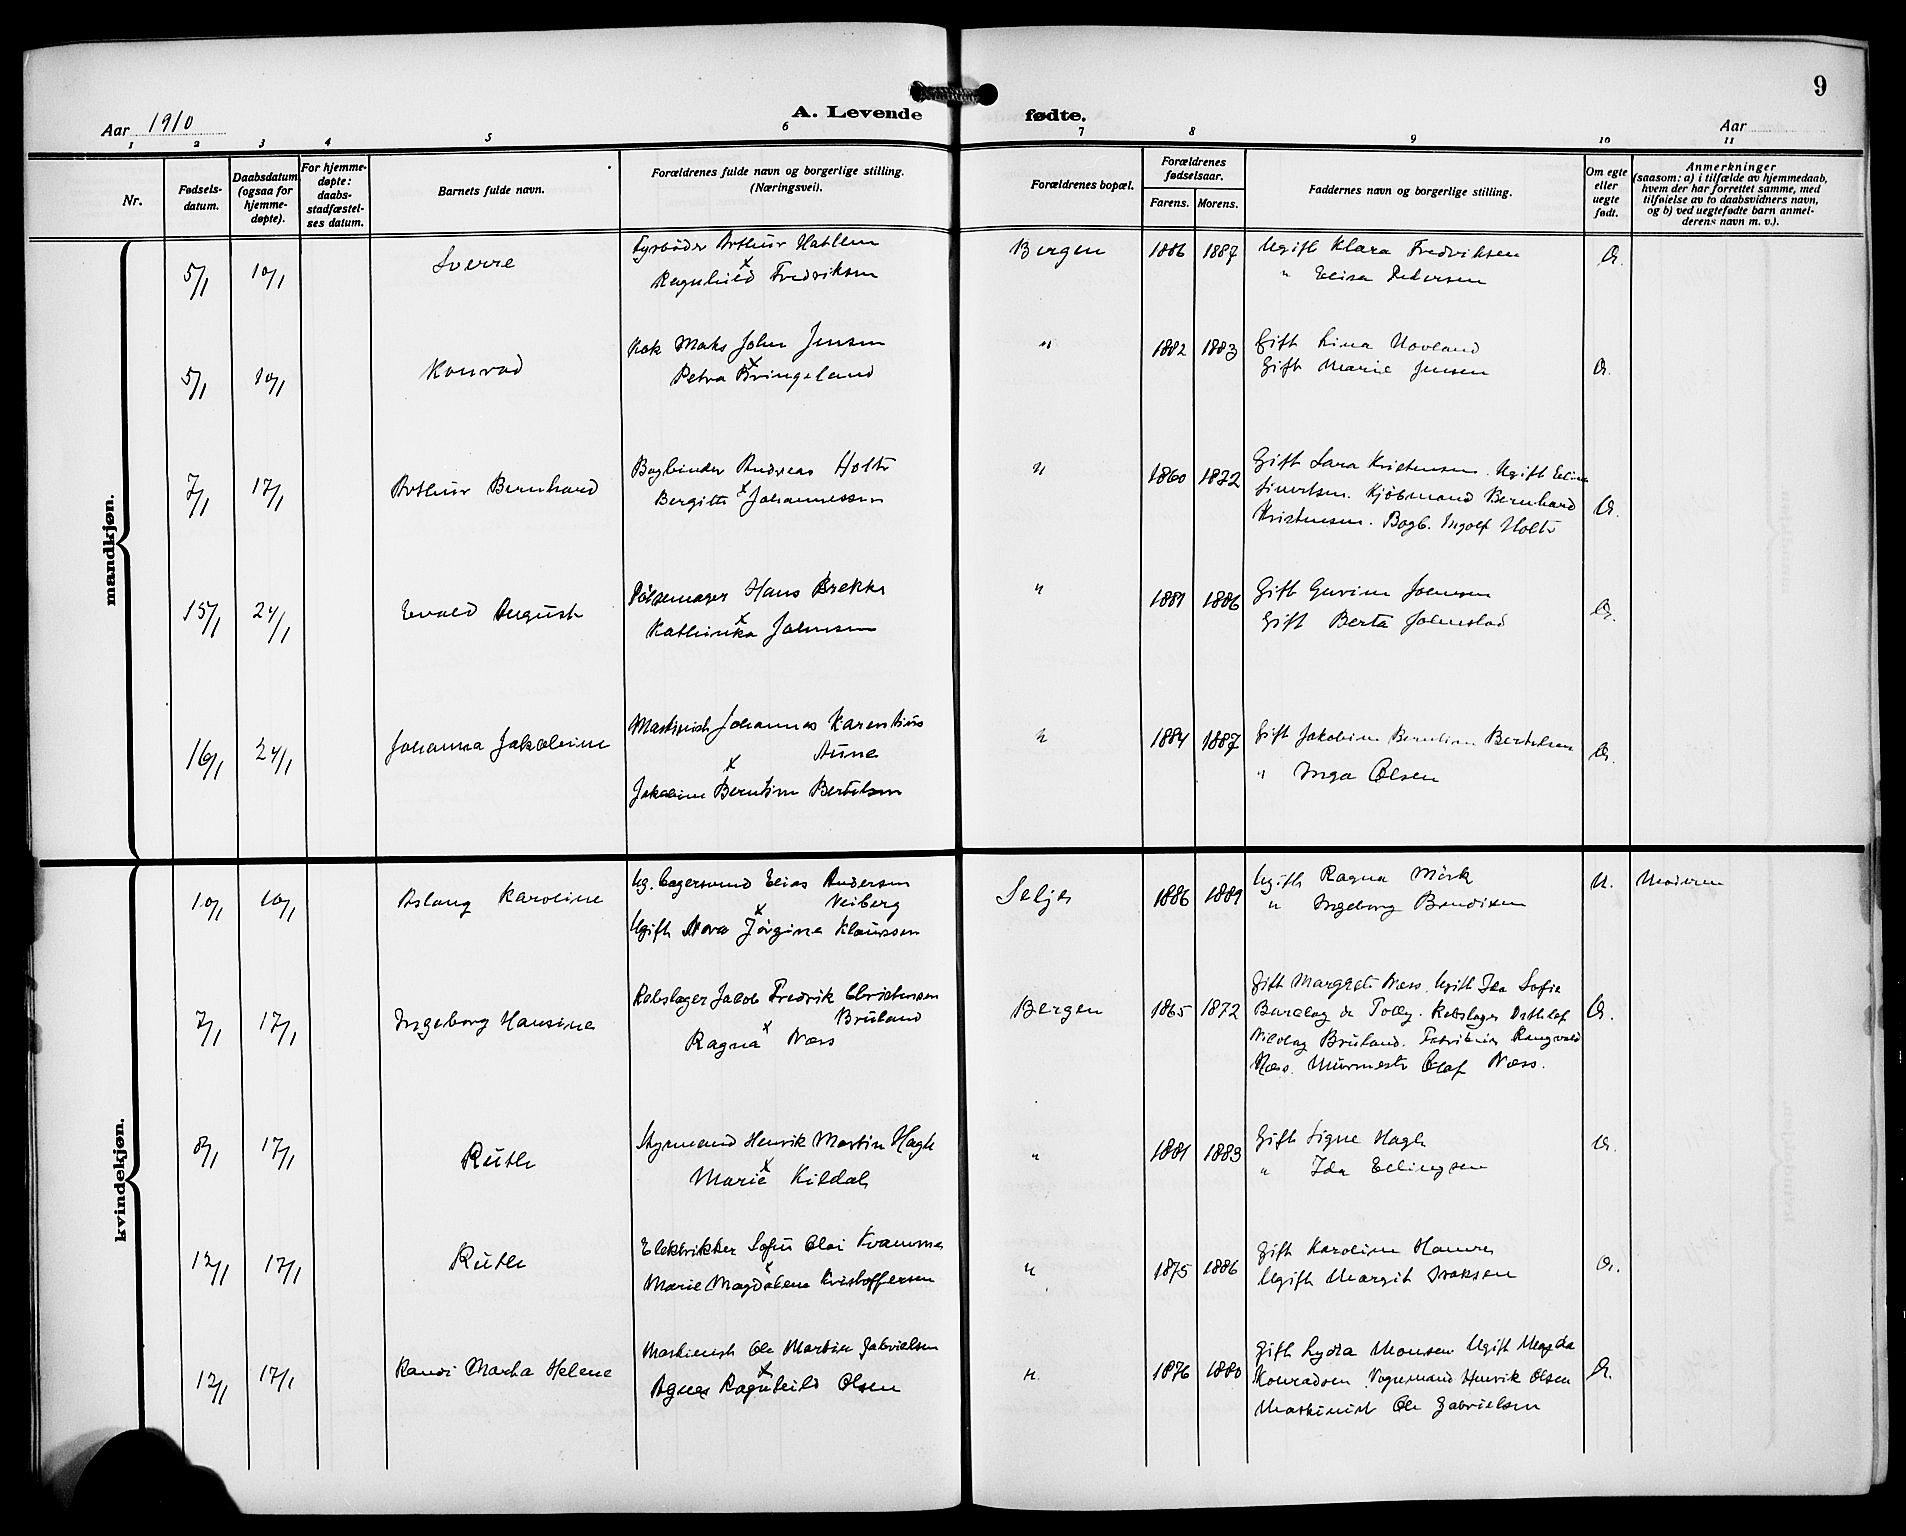 9
Aar 1910
A. Levende fødte.
Aar
1 2 3 4 5 6 7 8 9 10 11
Nr.
Fødsels-
datum.
Daabsdatum
(ogsaa for
hjemme-
døpte).
For hjemme-
døpte:
daabs-
stadfæstel-
ses datum.
Barnets fulde navn.
Forældrenes fulde navn og borgerlige stilling.
(Næringsveil.
Forældrenes bopæl.
Forældrenes
fødselsaar.
Farens. Morens.
Faddernes navn og borgerlige stilling.
Om egte
eller
uegte
født.
Anmerkninger
(saasom: a) i tilfælde av hjemmedaab,
hvem der har forrettet samme, med
tilføielse av to daabsvidners navn,
og b) ved uegtefødte barn anmel-
derens navn m. v.).
mandkjøn.
5/1 10/1 Sverre
Fyrbøder Arthur Hatlem
x
Ragnhild Fredriksen
Bergen 1886 1887
Ugift Klara Fredriksen
" Elisa Pedersen
Æ.
5/1 10/1 Konrad
Kok Maks John Jensen
x
Petra Kringeland
" 1882 1883
Gift Lina Hovland
Gift Marie Jensen
Æ.
7/1 17/1 Arthur Bernhard
Bogbinder Andreas Holte
x
Bergitte Johannessen
" 1860 1872
Gift Sara Kristensen. Ugift Eline
Sivertsen. Kjøbmand Bernhard
Kristensen. Bogb. Ingolf Holte
Æ.
15/1 24/1 Evald August
Pølsemager Hans Brekke
x
Kathinka Johnsen
" 1881 1886
Gift Gurine Johnsen
Gift Berta Johnstad
Æ.
16/1 24/1 Johanna Jakobine
Maskinist Johannes Karenstius
Aune
x
Jakobine Berntine Bertelsen
" 1884 1887
Gift Jakobine Berntine Bertelsen
" Inga Olsen
Æ.
kvindekjøn.
10/1 10/1 Aslaug Karoline
Ug. Lagersvend Elias Andersen
Veiberg
x
Ugift Nora Jørgine Klaussen
Selje 1886 1889
Ugift Ragna Mörk
" Ingeborg Bendixen
U. Moderen
7/1 17/1 Ingeborg Hansine
Rebslager Jacob Fredrik Christensen
Bruland
x
Ragna Næss
Bergen 1865 1872
Gift Margrete Næss. Ugift Ida Sofie
Burclay de Tolly. Rebslager Dethlef
Nicolay Bruland. Fabrikeier Rangvald
Næss. Murmester Olaf Næss.
Æ.
8/1 17/1 Ruth
Styrmand Henrik Martin Hagh
x
Marie Kildal
" 1881 1883
Gift Signe Hagh
" Ida Ellingsen
Æ.
12/1 17/1 Ruth
Elektriker Sofus Olai Kvamme
x
Marie Magdalena Kristoffersen
" 1875 1886
Gift Karoline Hamre
Ugift Margit Isaksen
Æ.
12/1 17/1 Randi Marta Helene
Maskinist Ole Martin Gabrielsen
x
Agnes Ragnhild Olsen
" 1876 1880
Gift Lydia Monsen Ugift Magda
Konradsen. Vognmand Henrik Olsen
Maskinist Ole Gabrielsen
Æ.